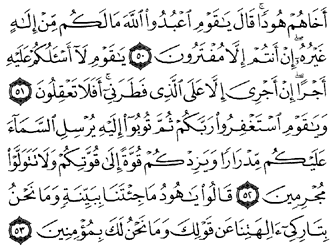 أَخَاهُمْ هُودًا ۚ قَالَ يَـٰقَوْمِ ٱعْبُدُوا۟ ٱللَّهَ مَا لَكُم مِّنْ إِلَـٰهٍ
غَيْرُهُۥٓ ۖ إِنْ أَنتُمْ إِلَّا مُفْتَرُونَ ٥٠ يَـٰقَوْمِ لَآ أَسْـَٔلُكُمْ عَلَيْهِ
أَجْرًا ۖ إِنْ أَجْرِىَ إِلَّا عَلَى ٱلَّذِى فَطَرَنِىٓ ۚ أَفَلَا تَعْقِلُونَ ٥١
وَيَـٰقَوْمِ ٱسْتَغْفِرُوا۟ رَبَّكُمْ ثُمَّ تُوبُوٓا۟ إِلَيْهِ يُرْسِلِ ٱلسَّمَآءَ
عَلَيْكُم مِّدْرَارًا وَيَزِدْكُمْ قُوَّةً إِلَىٰ قُوَّتِكُمْ وَلَا تَتَوَلَّوْا۟
مُجْرِمِينَ ٥٢ قَالُوا۟ يَـٰهُودُ مَا جِئْتَنَا بِبَيِّنَةٍ وَمَا نَحْنُ
بِتَارِكِىٓ ءَالِهَتِنَا عَن قَوْلِكَ وَمَا نَحْنُ لَكَ بِمُؤْمِنِينَ ٥٣